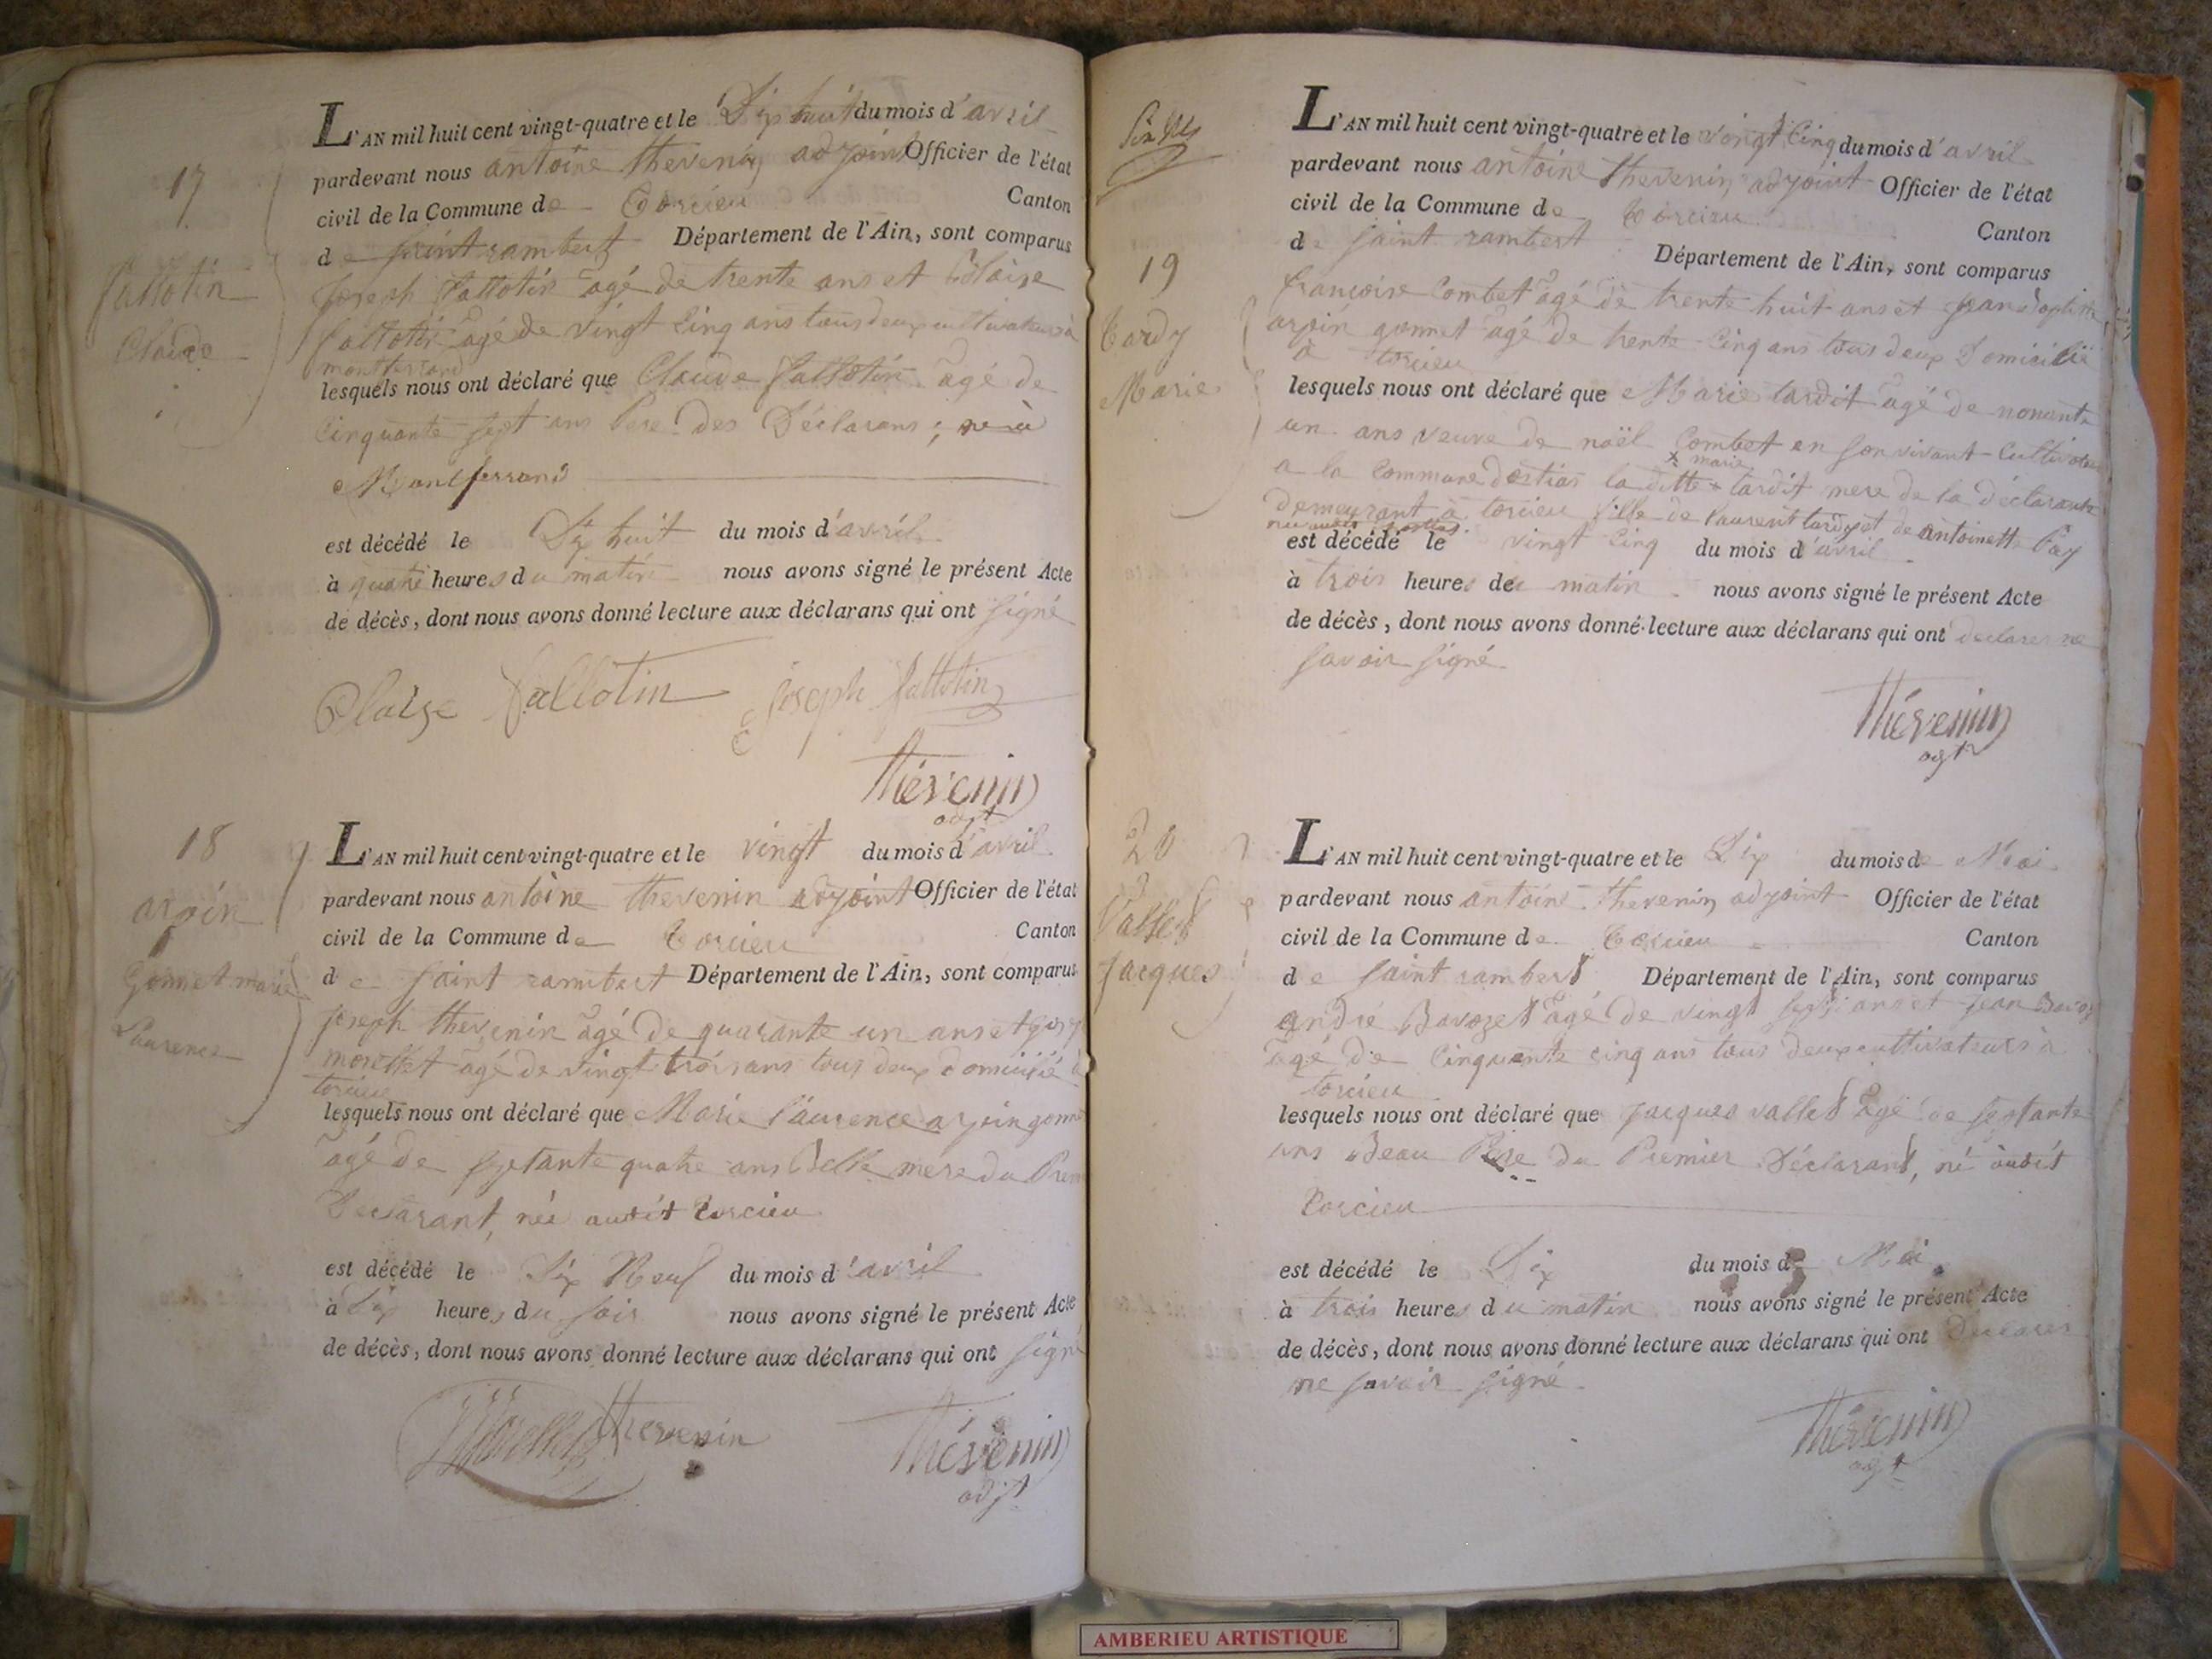 17
fallotin
Claude
L'AN mil huit cent vingt-quatre et le Dix huit du mois d'avril
pardevant nous antoine thevenin adjoint Officier de l'état
civil de la Commune de torcieu Canton
de saint rambert Département de l'Ain, sont comparus
joseph fallotin agé de trente ans et Blaise
fallotin agé de vingt cinq ans tous deux cultivateurs à
montferrand
lesquels nous ont déclaré que Claude fallotin agé de
cinquante sept ans Pere des Déclarans ; né à
Montferrand
est décédé le Dix huit du mois d'avril
à quatre heures du matin nous avons signé le présent Acte
de décès, dont nous avons donné lecture aux déclarans qui ont signé
Blaise fallotin joseph fallotin
Thévenin
adjt
18
arpin
gonnet marie
Laurence
L'AN mil huit cent vingt-quatre et le vingt du mois d'avril
pardevant nous antoine thevenin adjoint Officier de l'état
civil de la Commune de torcieu Canton
de saint rambert Département de l'Ain, sont comparus
joseph thevenin agé de quarante un ans et
agé de vingt trois ans tous deux domicilié à
torcieu
lesquels nous ont déclaré que Marie Laurence arpin gonne
agé de septante quatre ans Belle mere du Prem
Declarant, née audit torcieu
est décédé le Dix Neuf du mois d'avril
à Dix heures du soir nous avons signé le présent Acte
de décès, dont nous avons donné lecture aux déclarans qui ont signé
thevenin Thévenin
adjt
19
tardy
Marie
L'AN mil huit cent vingt-quatre et le vingt Cinq du mois d'avril
pardevant nous antoine thevenin adjoint Officier de l'état
civil de la Commune de torcieu Canton
de saint rambert Département de l'Ain, sont comparus
françoise Combet agé de trente huit ans et jean baptiste
arpin gonnet agé de trente cinq ans tous deux Domicilié
à torcieu
lesquels nous ont déclaré que Marie tardit agé de nonante
un ans veuve de noël Combet en son vivant Cultivateur
x marie
a la Commune dostias la ditte x tardit mere de la déclarante
demeurant à torcieu fille de laurent tardy et de antoinette Pay
est décédé le vingt cinq du mois d'avril
à trois heures du matin nous avons signé le présent Acte
de décès, dont nous avons donné lecture aux déclarans qui ont declarer ne
savoir signé
Thévenin
adjt
20
Vallet
Jacques
L'AN mil huit cent vingt-quatre et le Dix du mois de Mai
pardevant nous antoine thevenin adjoint Officier de l'état
civil de la Commune de torcieu Canton
de saint rambert Département de l'Ain, sont comparus
andré Bavozet agé de vingt sept ans et jean
agé de cinquante cinq ans tous deux cultivateurs à
torcieu
lesquels nous ont déclaré que jacques vallet agé de septante
ans Beau Pere du Premier Déclarant, né audit
torcieu
est décédé le Dix du mois de Mai
à trois heures du matin nous avons signé le présent Acte
de décès, dont nous avons donné lecture aux déclarans qui ont declarer
ne savoir signé
Thévenin
adjt
AMBERIEU ARTISTIQUE